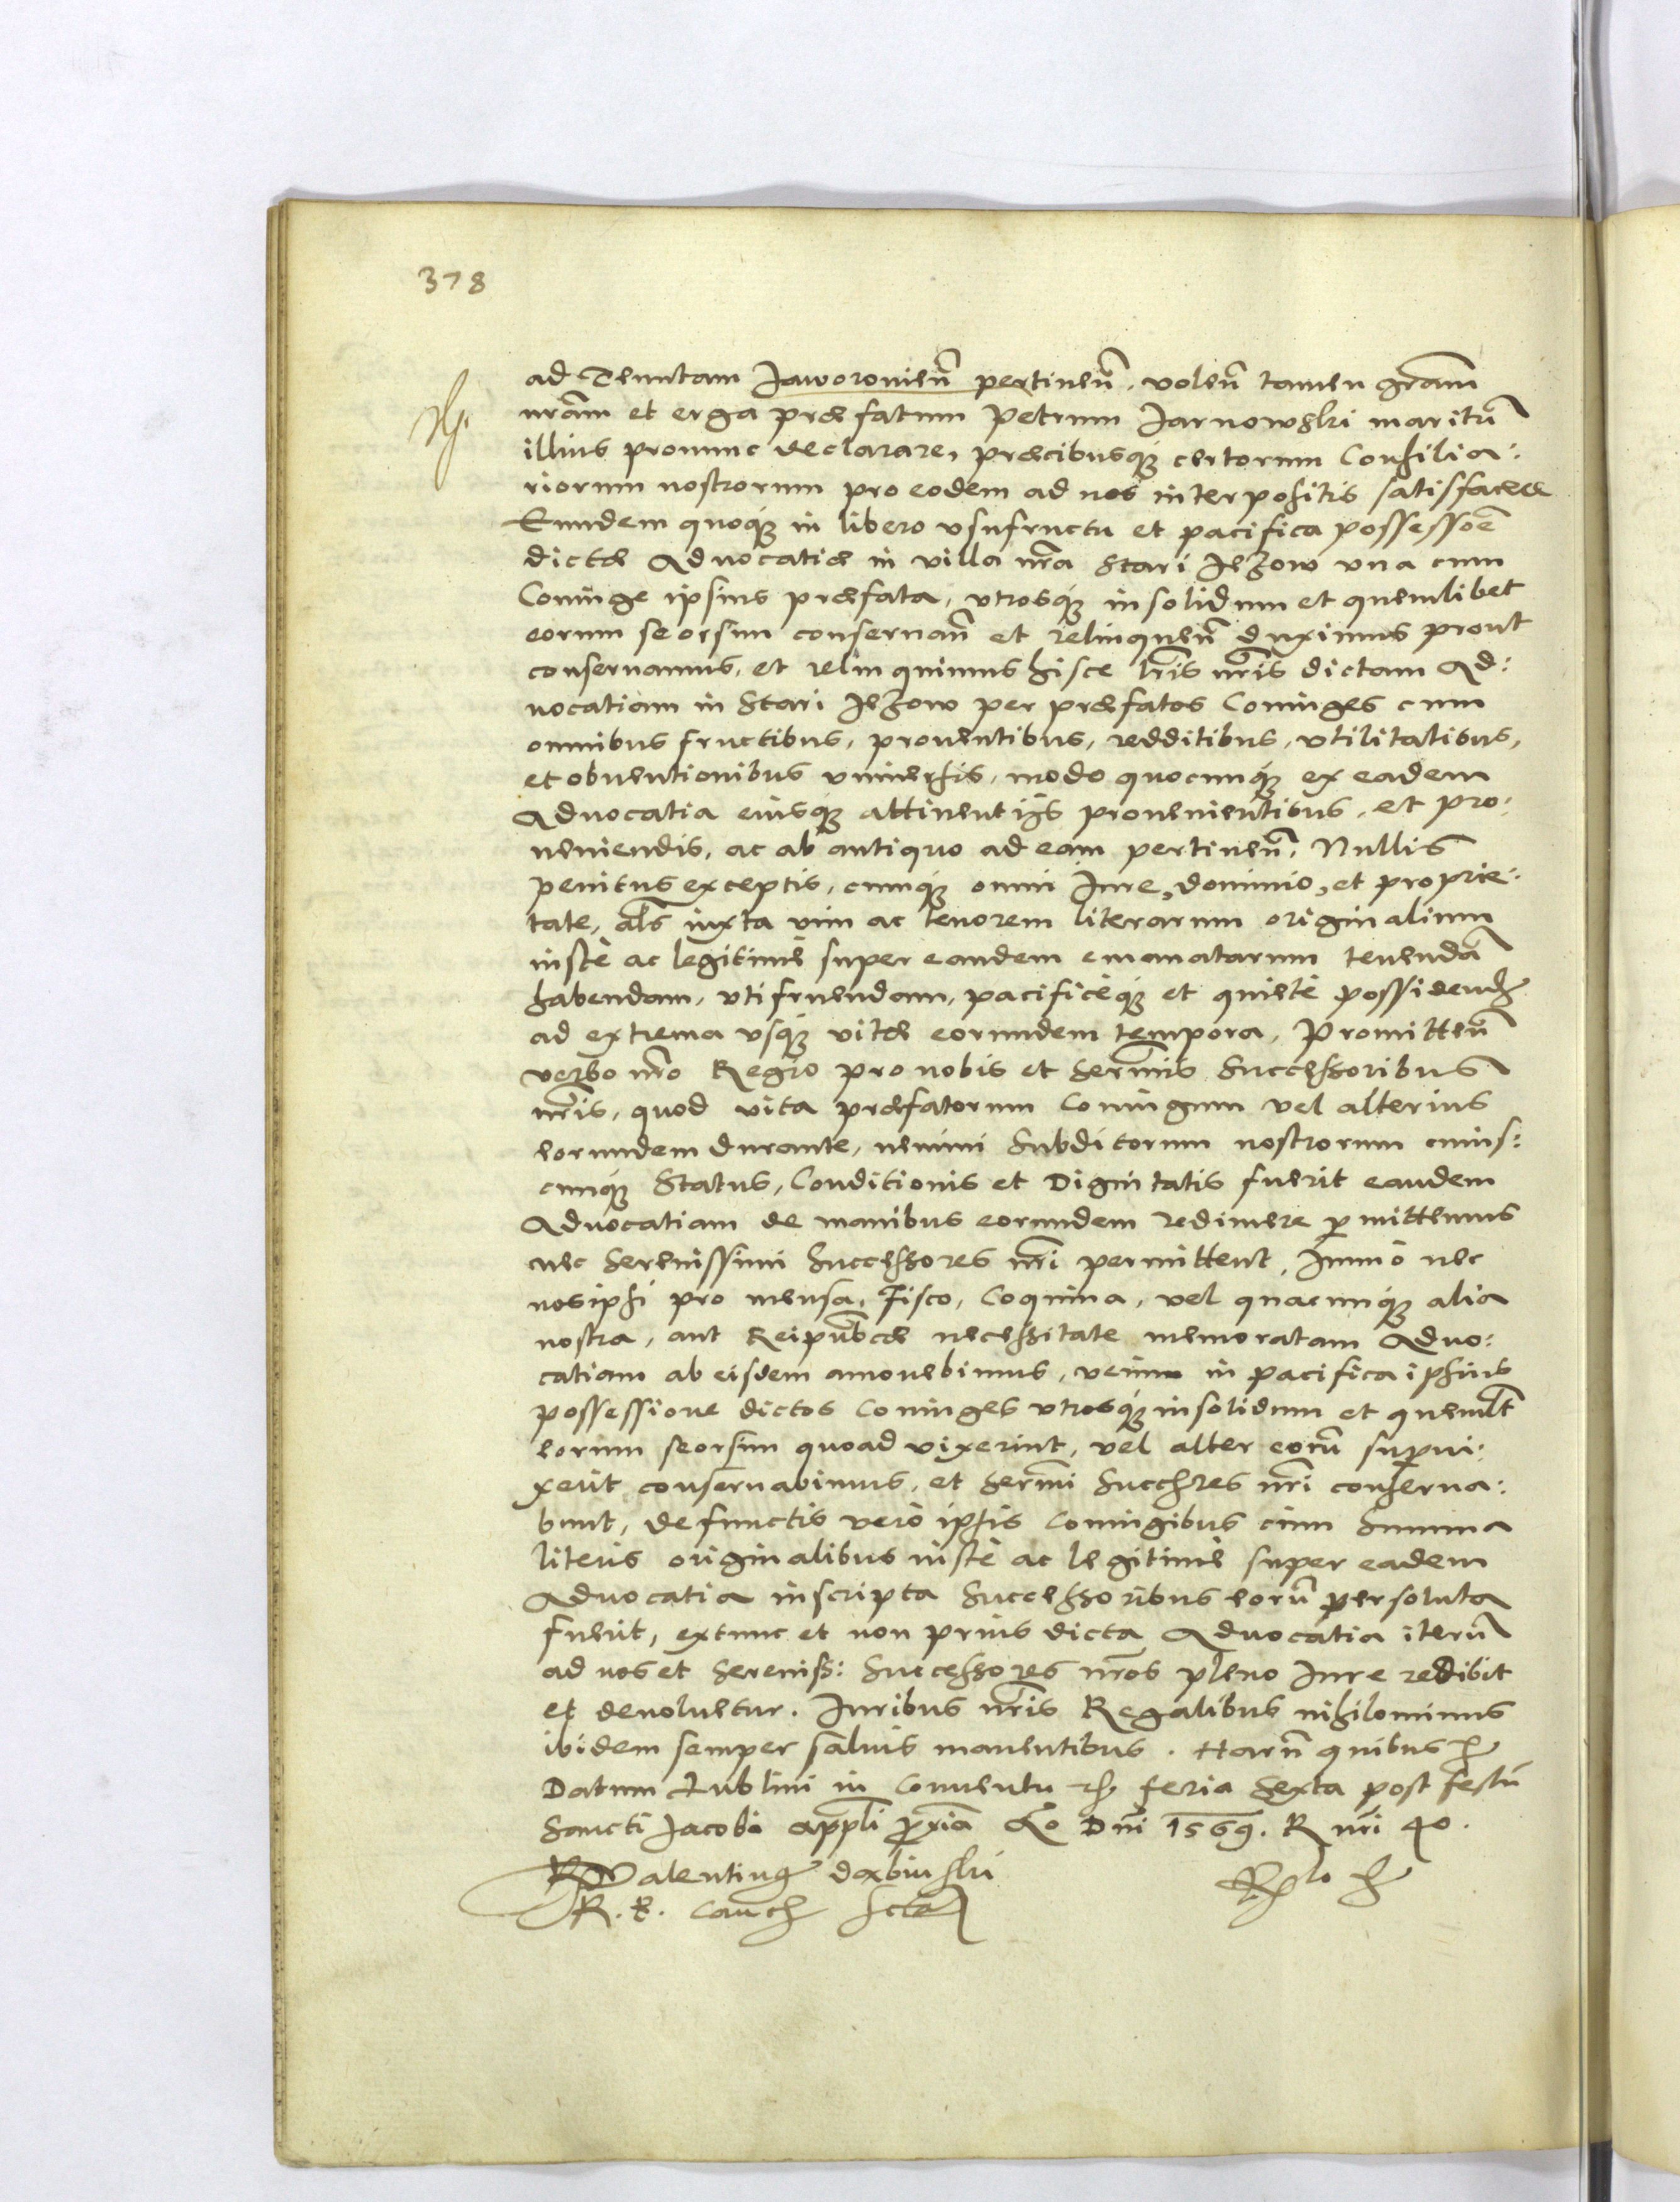 378
ad Tenutam Jaworowien̄ pertinen̄, volen̄ tamen gr̄am
nr̄am et erga præfatum Petrum Jarnowski maritū
illius pronunc declarare, præcibusq́ꝫ certorum Consilia:
riorum nostrorum pro eodem ad nos interpositis satisfacere
Eundem quoq́ꝫ in libero vsufructu et pacifica possessōe
dictæ Aduocatiæ in villa nr̄a Stari Jeżow vna cum
Coniuge ipsius præfata, vtrosq́ꝫ insolidum et quemlibet
eorum seorsim conseruan̄ et relinquen̄ duximus prout
conseruamus, et relinquimus hisce lr̄is nr̄is dictam Ad:
uocatiam in Stari Jeżow per præfatos Coniuges cum
omnibus fructibus, prouentibus, redditibus, vtilitatibus,
et obuentionibus vniuersis, modo quocunq́ꝫ ex eadem
Aduocatia eiusq́ꝫ attinentijs prouenientibus, et pro:
ueniendis, ac ab antiquo ad eam pertinen̄, Nullis
penitus exceptis, cumq́ꝫ omni Jure, dominio, et proprie:
tate, al̄s iuxta vim ac tenorem literarum originalium
iustè ac legitimè super eandem emanatarum tenendā
habendam, vtifruendam, pacificèq́ꝫ et quietè possidend
ad extrema vsq́ꝫ vitæ eorundem tempora, Promitten̄
verbo nr̄o Regio pro nobis et Serm̄is Successoribus
nr̄is, quod vita præfatorum Coniugum vel alterius
eorundem durante, nemini Subditorum nostrorum cuius:
cunq́ꝫ Status, Conditionis et Dignitatis fuerit eandem
Aduocatiam de manibus eorundem redimere p̄mittemus
nec Serenissimi Successores nr̄i permittent, Immò nec
nosipsi pro mensa, Fisco, Coquina, vel quacunq́ꝫ alia
nostra, aut Reipub̄cæ necessitate memoratam Aduo:
catiam ab eisdem amouebimus, verum in pacifica ipsius
possessione dictos Coniuges vtrosq́ꝫ insolidum et quemlt̄
eorum seorsim quoad vixerint, vel alter eorū sup̄ui:
xerit conseruabimus, et Serm̄i Succ̄res nr̄i conserua:
bunt, defunctis verò ipsis Coniugibus cum Summa
literis originalibus iustè ac legitimè super eadem
Aduocatia inscripta Successoribus eorū persoluta
fuerit, extunc et non prius dicta Aduocatia iterū
ad nos et Sereniss: Successores nr̄os pleno Jure redibit
et deuoluetur. Juribus nr̄is Regalibus nihilominus
ibidem semper saluis manentibus. Harū quibus ꝛc
Datum Lublini in Conuentu ꝛc feria Sexta post festū
Sancti Jacobi app̄li p̄xia Ao Dn̄i 1569. R nr̄i 40.
Valentinꝰ Dębinski
R. P. Canc